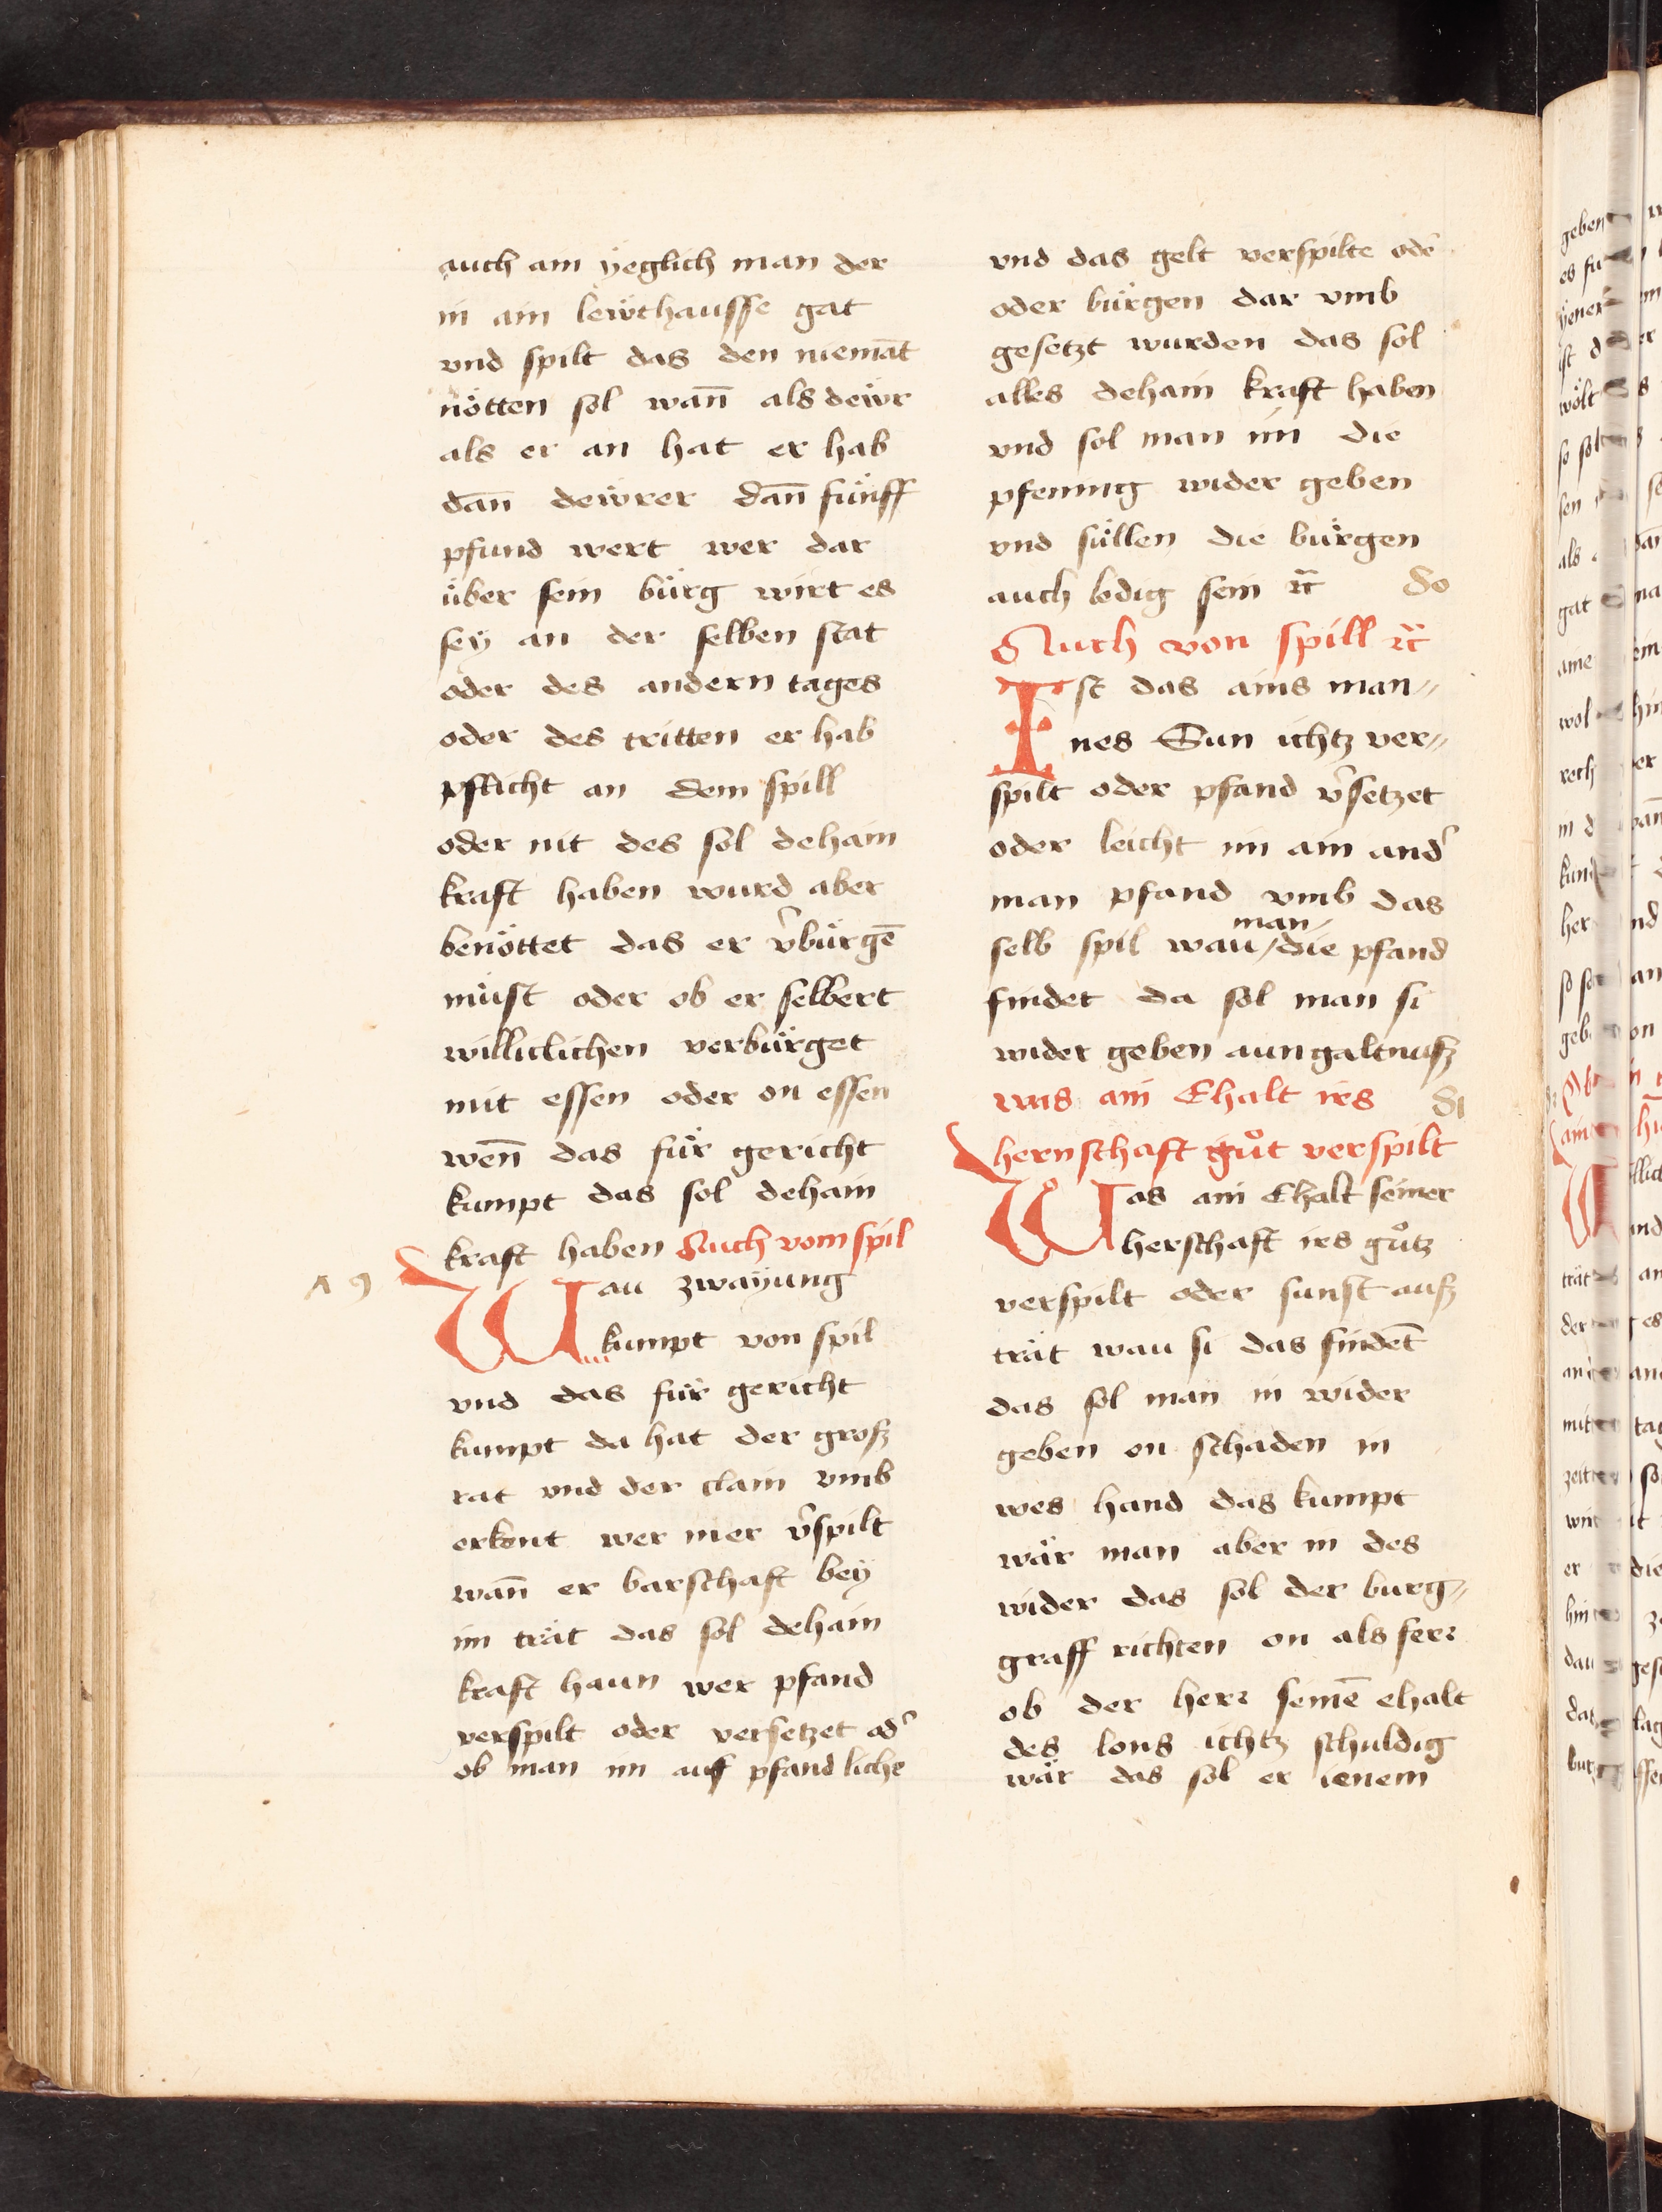 auch ain yeglich man der
in ain lewthausse gat
vnd spilt das den niemāt
nötten sol wan̄ als dewr
als er an hat er hab
dan̄ dewrer dan̄ fünff
pfund wert wer dar
über sein bürg wirt es
sey an der selben stat
oder des andern tages
oder des tritten er hab
pflicht an dem spill
oder nit des sol dehain
kraft haben wurd aber
benöttet das er v̉bürgē
müst oder ob er selbert
williclichen verbürget
mit essen oder on essen
wen̄ das für gericht
kumpt das sol dehain
kraft haben Auch vom spil
79
Wau zwayung
kumpt von spil
vnd das für gericht
kumpt da hat der grosz
rat vnd der clain vmb
erkent wer mer v̉spilt
wan̄ er barschaft bey
im trät das sol dehain
kraft haun wer pfand
verspilt oder versetzet od̉
ob man im auf pfand liche
vnd das gelt verspilte ode᷑
oder bürgen dar vmb
gesetzt wurden das sol
alles dehain kraft haben
vnd sol man im die
pfening wider geben
vnd süllen die bürgen
auch ledig sein ꝛc̄
80
Auch von spill ꝛc̄
Ist das ains man〃
nes Sun ichtz ver〃
spilt oder pfand v̉setzet
oder leicht im ain and̉
man pfand vmb das
selb spil wau /man die pfand
findet da sol man si
wider geben aun galtnusz
was ain Ehalt irs
81
hernschaft gůt verspilt
Was ain Ehalt seiner
herschaft irs gůtz
verspilt oder sunst ausz
trät wau si das findēt
das sol man in wider
geben on schaden in
wes hand das kumpt
wär man aber in des
wider das sol der burg〃
graff richten on als ferr
ob der herr seinē ehalt
des lons ichtz schuldig
wär das sol er ienem